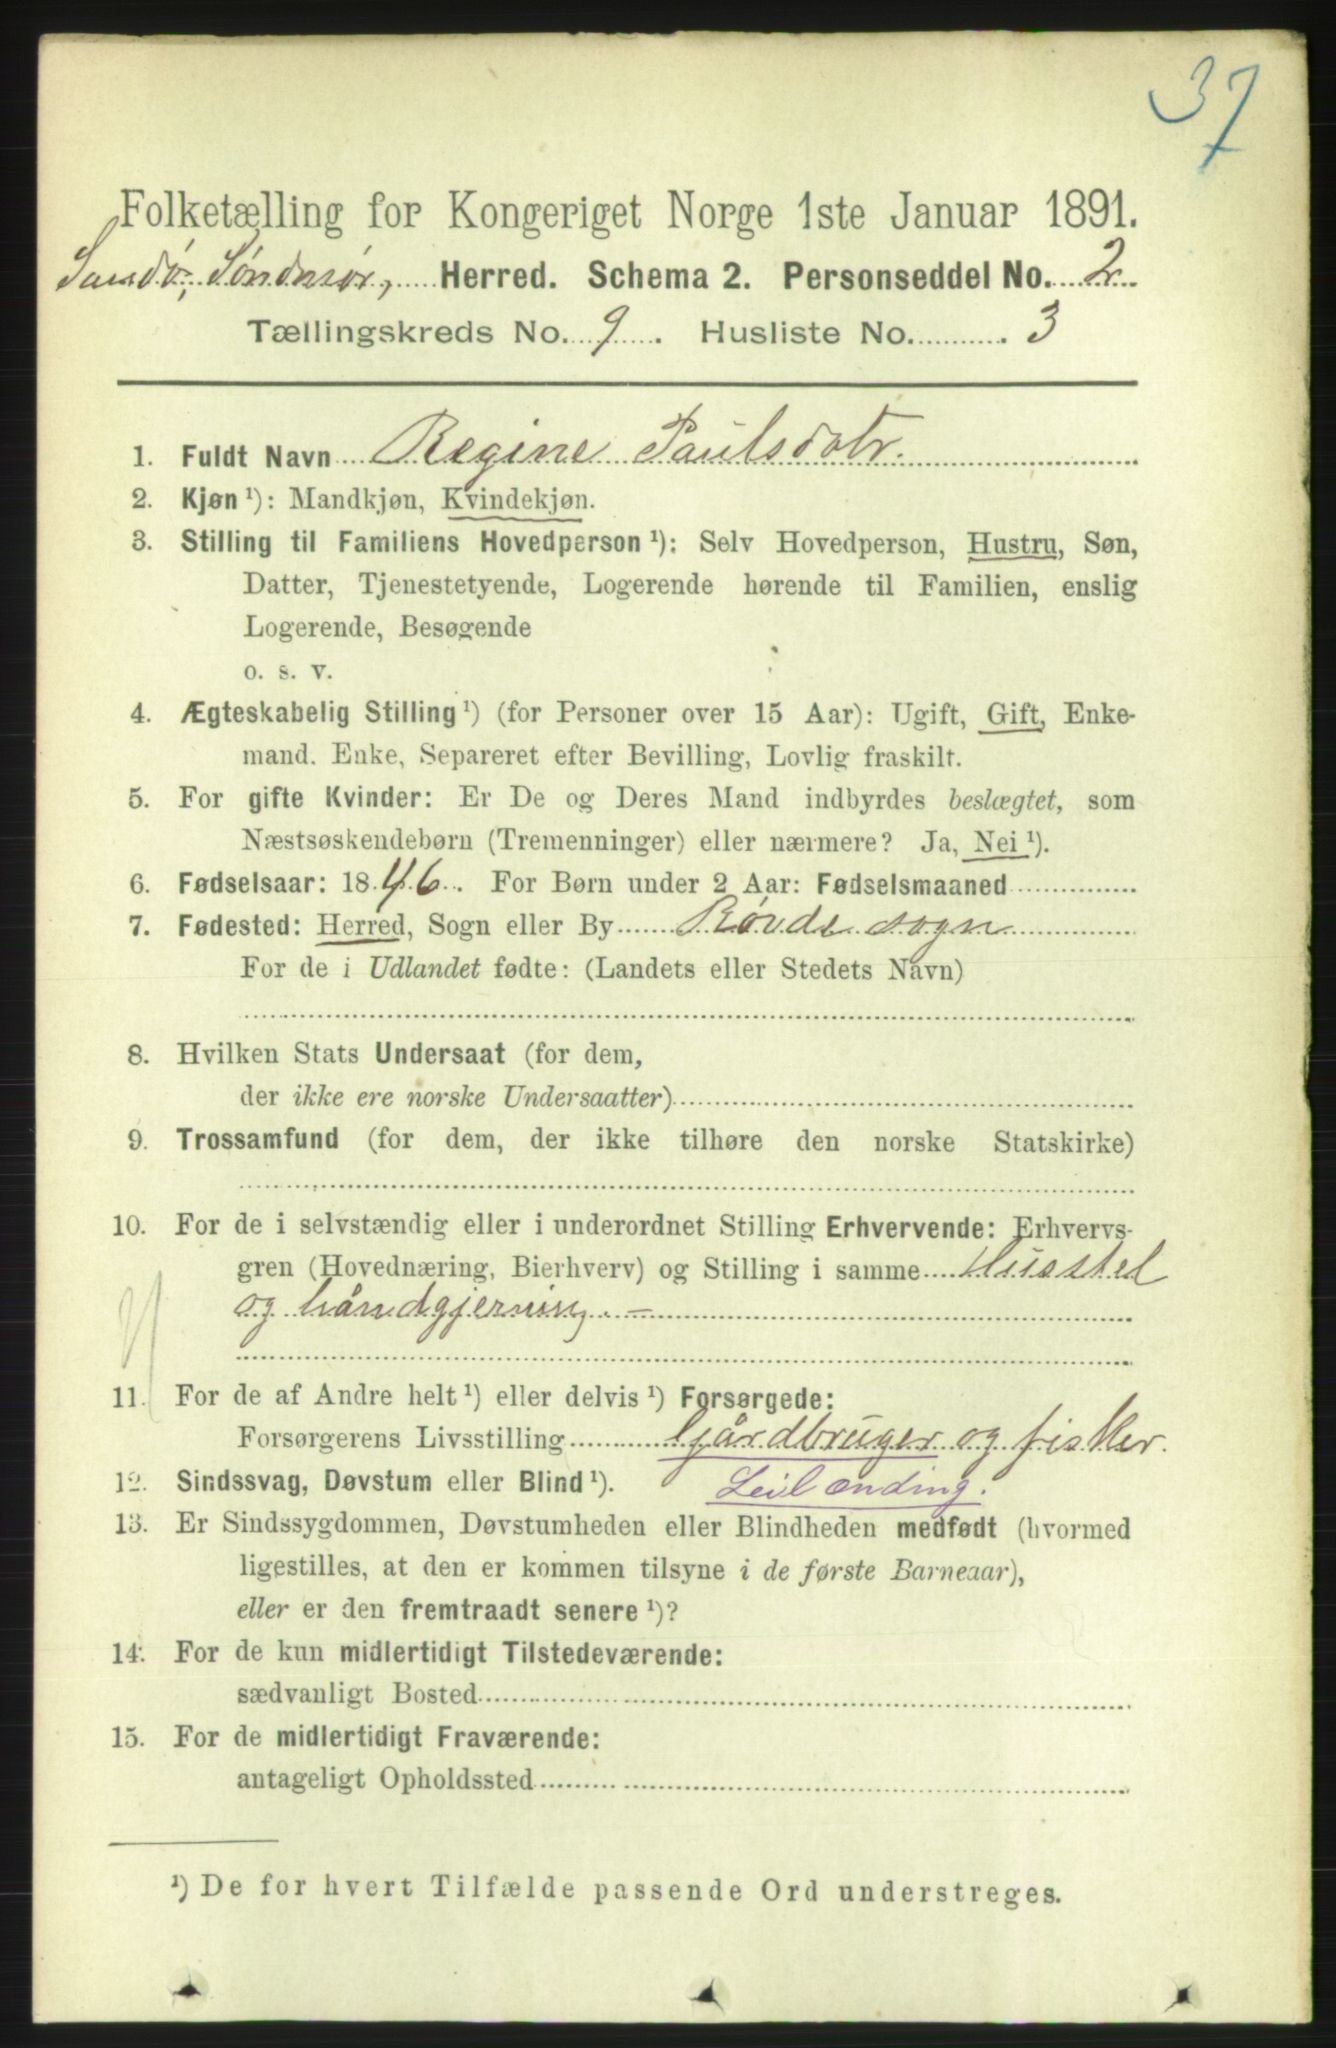 37
Folketælling for Kongeriget Norge 1ste Januar 1891.
Sandø, Søndmør, Herred. Schema 2. Personseddel No. 2.
Tællingskreds No. 9. Husliste No. 3
1. Fuldt Navn Regine Paulsdatr.
2. Kjøn ¹): Mandkjøn, Kvindekjøn.
3. Stilling til Familiens Hovedperson ¹): Selv Hovedperson, Hustru, Søn,
Datter, Tjenestetyende, Logerende hørende til Familien, enslig
Logerende, Besøgende
o. s. v.
4. Ægteskabelig Stilling ¹) (for Personer over 15 Aar): Ugift, Gift, Enke-
mand. Enke, Separeret efter Bevilling, Lovlig fraskilt.
5. For gifte Kvinder: Er De og Deres Mand indbyrdes beslægtet, som
Næstsøskendebørn (Tremenninger) eller nærmere? Ja, Nei ¹).
6. Fødselsaar: 1846. For Børn under 2 Aar: Fødselsmaaned
7. Fødested: Herred, Sogn eller By Røvde sogn
For de i Udlandet fødte: (Landets eller Stedets Navn)
8. Hvilken Stats Undersaat (for dem,
der ikke ere norske Undersaatter)
9. Trossamfund (for dem, der ikke tilhøre den norske Statskirke)
10. For de i selvstændig eller i underordnet Stilling Erhvervende: Erhvervs-
gren (Hovednæring, Bierhverv) og Stilling i samme Husstel
og håndgjerning. –
11. For de af Andre helt ¹) eller delvis ¹) Forsørgede:
Forsørgerens Livsstilling Gårdbruger og fisker.
12. Sindssvag, Døvstum eller Blind ¹). Leilænding.
13. Er Sindssygdommen, Døvstumheden eller Blindheden medfødt (hvormed
ligestilles, at den er kommen tilsyne i de første Barneaar),
eller er den fremtraadt senere ¹)?
14. For de kun midlertidigt Tilstedeværende:
sædvanligt Bosted
15. For de midlertidigt Fraværende:
antageligt Opholdssted
¹) De for hvert Tilfælde passende Ord understreges.